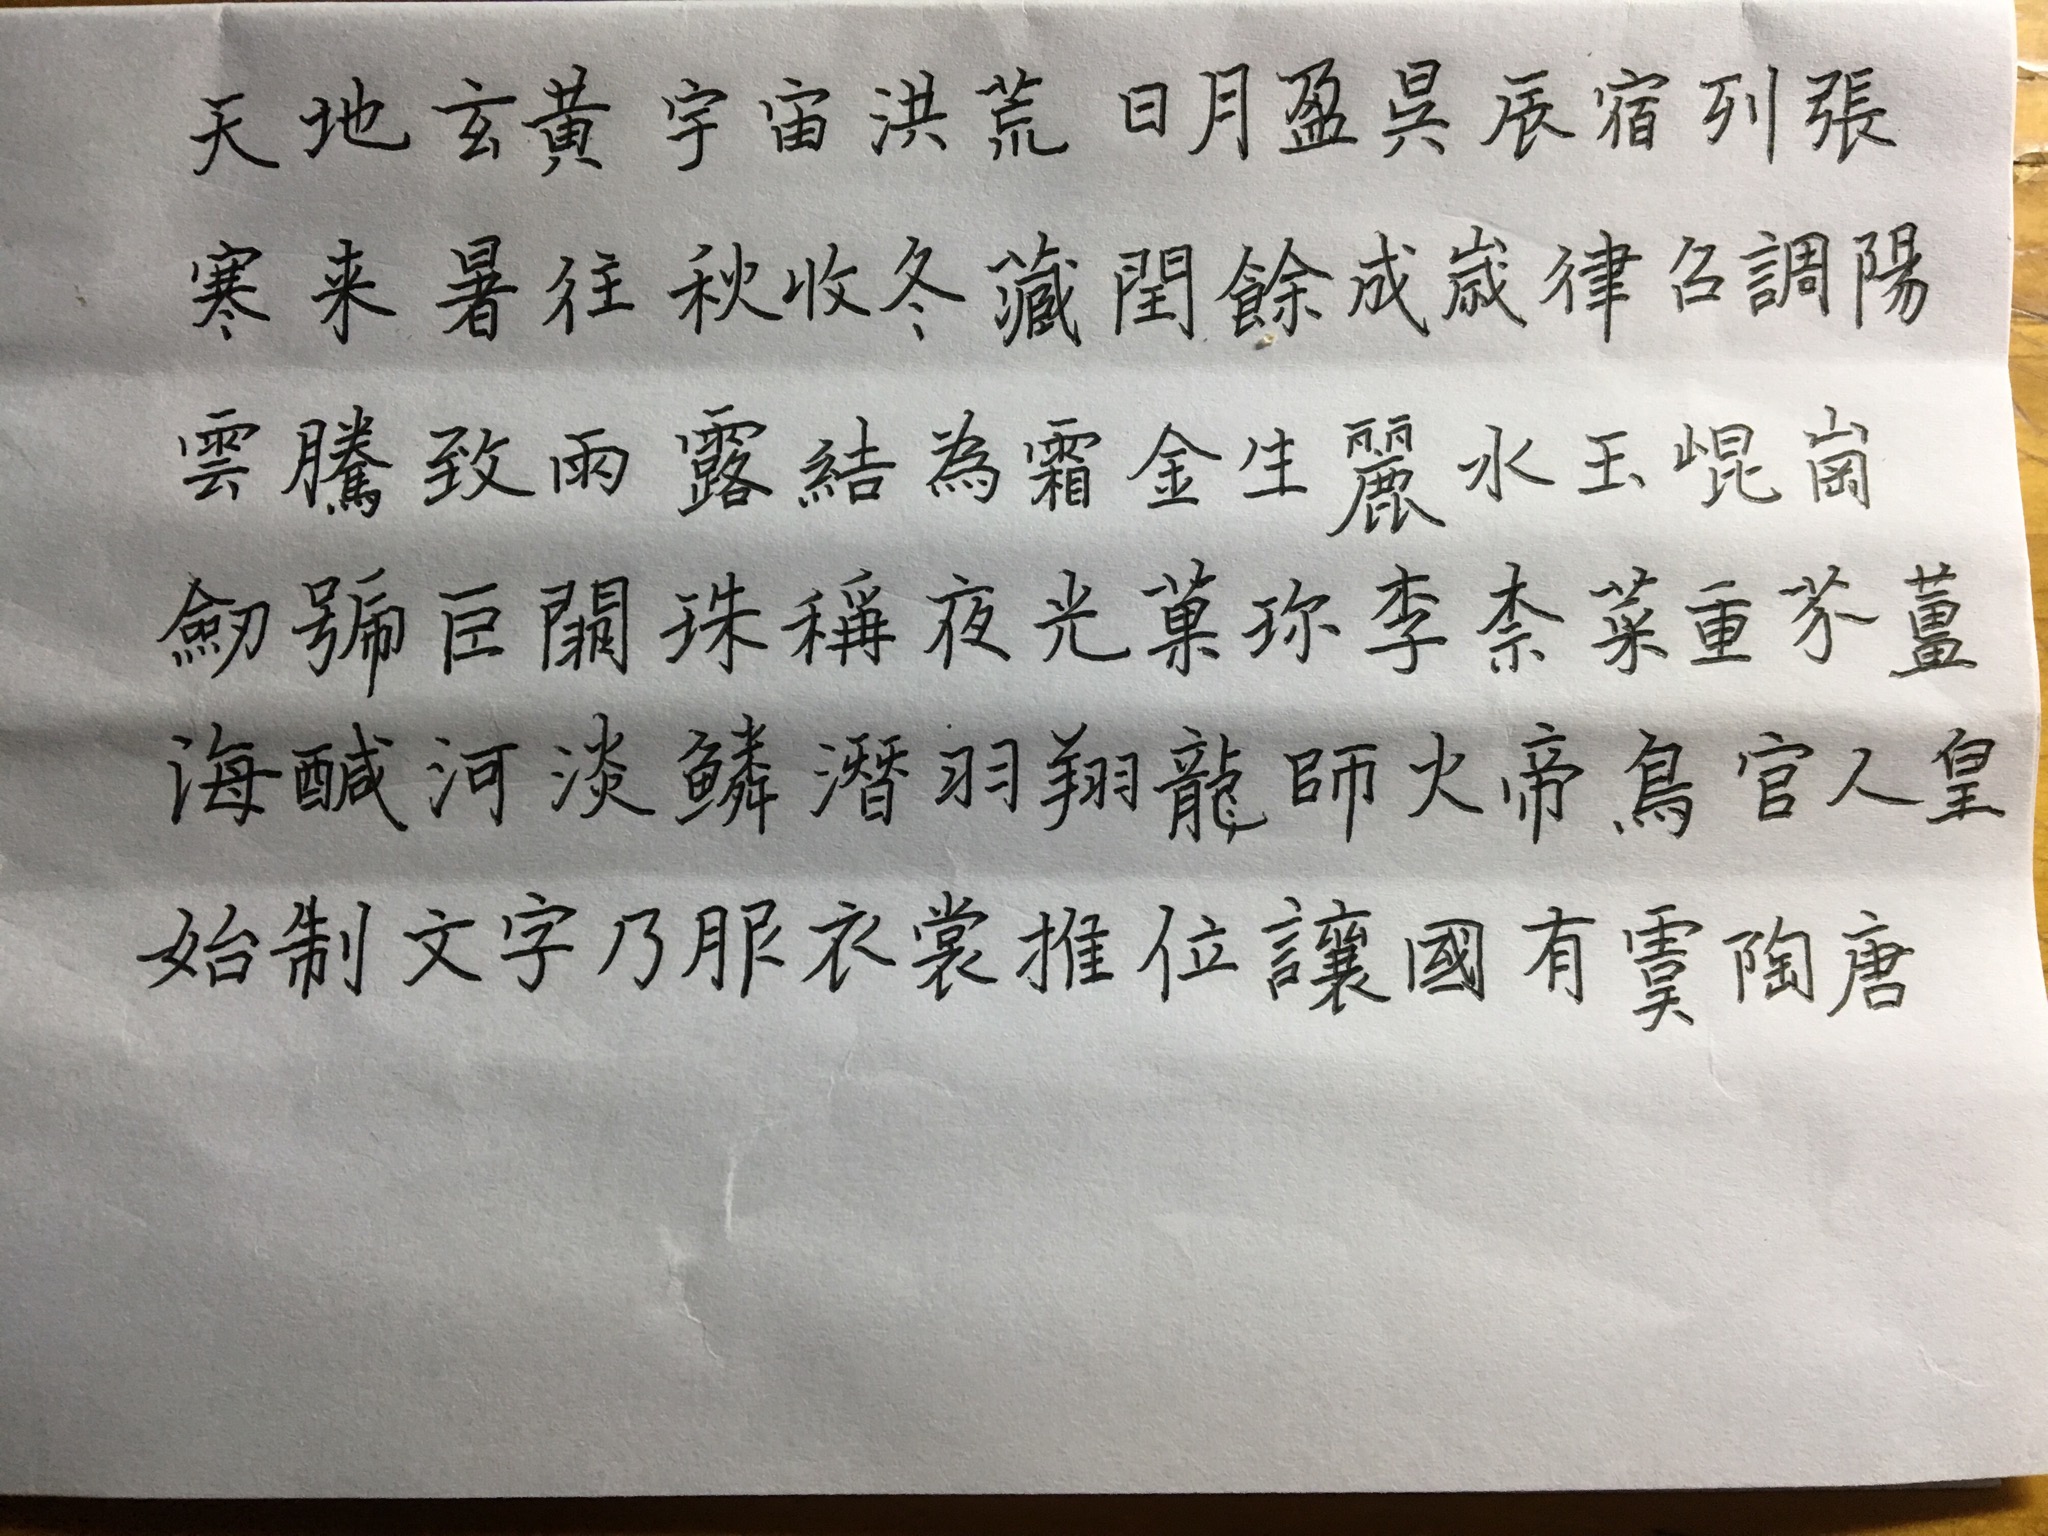 天地玄黄宇宙洪荒日月盈昃辰宿列張
寒来暑往秋收冬藏閏餘成歲律召調陽
雲騰致雨露結為霜金生麗水玉崐崗
劒號巨闕珠稱夜光菓珎李柰菜重芥薑
海鹹河淡鱗潛羽翔龍師火帝鳥官人皇
始制文字乃服衣裳推位讓國有虞陶唐